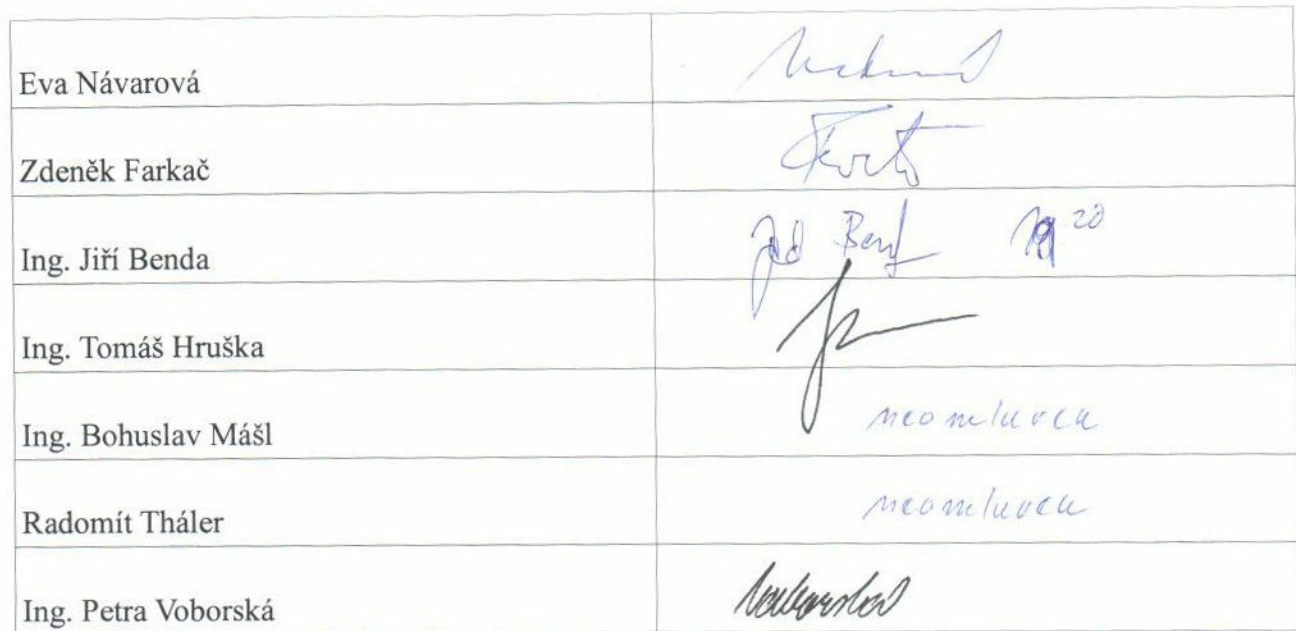 Eva Návarová
Zdeněk Farkač
Ing. Jiří Benda 19 20
Ing. Tomáš Hruška
Ing. Bohuslav Mášl neomluven
Radomít Tháler neomluven
Ing. Petra Voborská